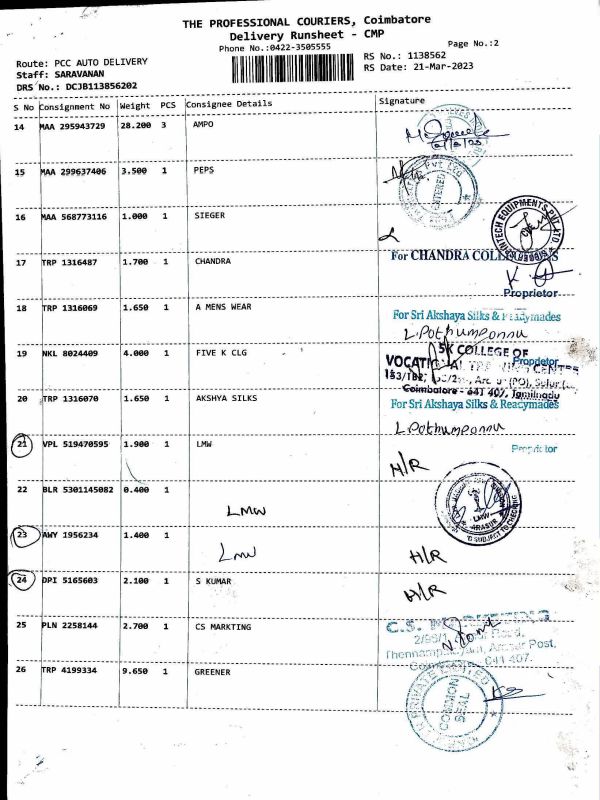 THE PROFESSIONAL COURIERS, Coimbatore
Delivery Runsheet - CMP
Phone No.:0422-3505555
Page No.:2
Route: PCC AUTO DELIVERY
RS No.: 1138562
Staff: SARAVANAN
RS Date: 21-Mar-2023
DRS No.: DCJB113856202
S No Consignment No Weight PCS Consignee Details Signature
14 MAA 295943729 28.200 3 AMPO
15 MAA 299637406 3.500 1 PEPS
ENTERED
16 MAA 568773116 1.000 1 SIEGER
17 TRP 1316487 1.700 1 CHANDRA
For CHANDRA
Proprietor
18 TRP 1316069 1.650 1 A MENS WEAR
For Sri Akshaya Silks & Readymades
L.Pothumponnu
19 NKL 8024409 4.000 1 FIVE K CLG
5K COLLEGE OF
Proprietor
Coimbatore - 641 407, Tamilnadu
20 TRP 1316070 1.650 1 AKSHYA SILKS
For Sri Akshaya Silks & Readymades
L.Pothumponnu
Proprietor
21 VPL 519470595 1.900 1 LMW
H/R
22 BLR 5301145082 0.400 1
LMW
LMW
ARASUR
SUBJECT TO CHECKING
23 AWY 1956234 1.400 1
LMW
H/R
24 DPI 5165603 2.100 1 S KUMAR
H/R
25 PLN 2258144 2.700 1 CS MARKTING
C.S. MARKETING
Road,
Post,
641 407.
26 TRP 4199334 9.650 1 GREENER
PRIVATE LIMITED
COMMON
SEAL